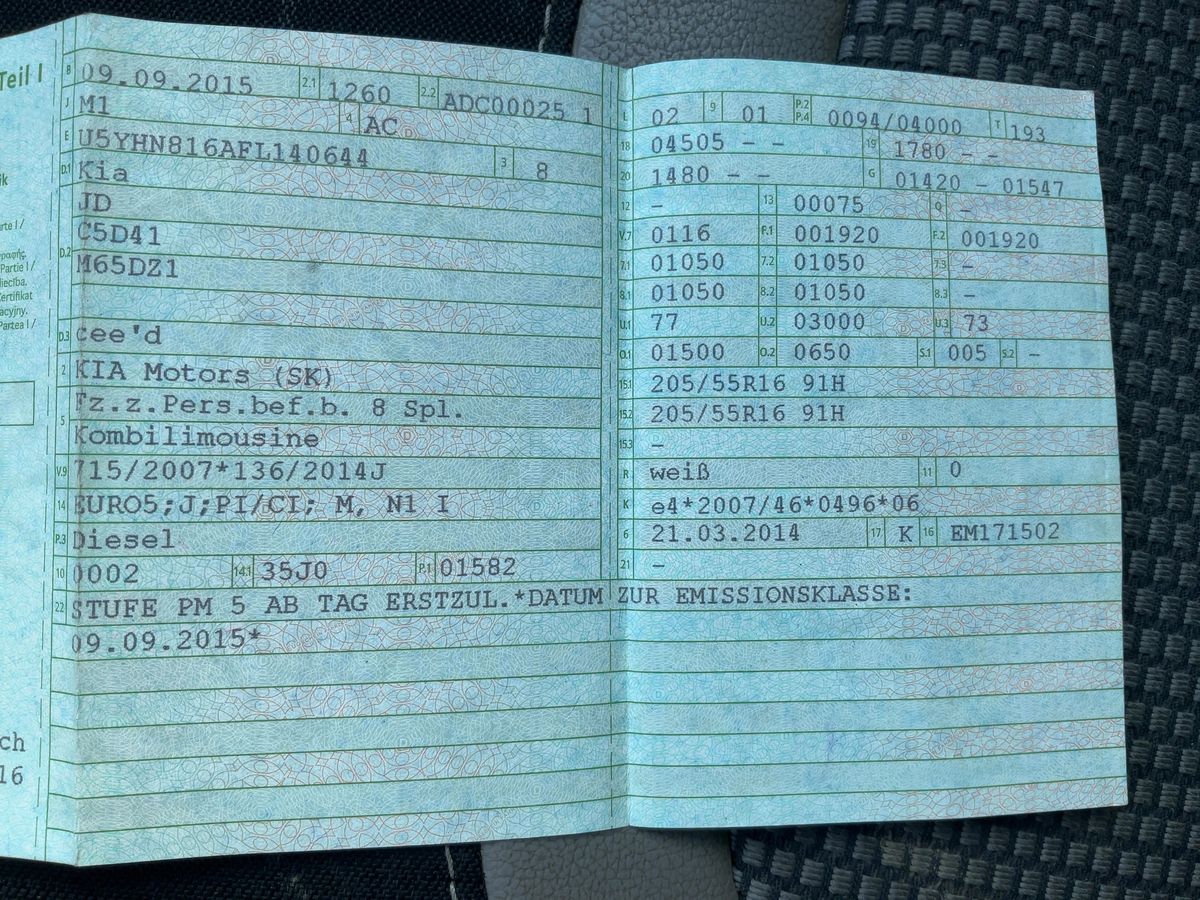 Teil I
ik
rte I /
ραφής.
Partie I /
iecība.
Certifikat
acyjny.
Partea I /
ch
16
B 09.09.2015 2.1 1260 2.2 ADC00025 1
J M1 4 AC
E U5YHN816AFL140644 3 8
D.1 Kia
JD
D.2 C5D41
M65DZ1
D.3 cee'd
2 KIA Motors (SK)
5 Fz.z.Pers.bef.b. 8 Spl.
Kombilimousine
V.9 715/2007*136/2014J
14 EURO5;J;PI/CI; M, N1 I
P.3 Diesel
10 0002 14.1 35J0 P.1 01582
L 02 9 01 P.2 P.4 0094/04000 T 193
18 04505 – – 19 1780 – –
20 1480 – – G 01420 – 01547
12 – 13 00075 Q –
V.7 0116 F.1 001920 F.2 001920
7.1 01050 7.2 01050 7.3 –
8.1 01050 8.2 01050 8.3 –
U.1 77 U.2 03000 U.3 73
O.1 01500 O.2 0650 S.1 005 S.2 –
15.1 205/55R16 91H
15.2 205/55R16 91H
15.3 –
R weiß 11 0
K e4*2007/46*0496*06
6 21.03.2014 17 K 16 EM171502
21 –
22 STUFE PM 5 AB TAG ERSTZUL.*DATUM ZUR EMISSIONSKLASSE:
09.09.2015*